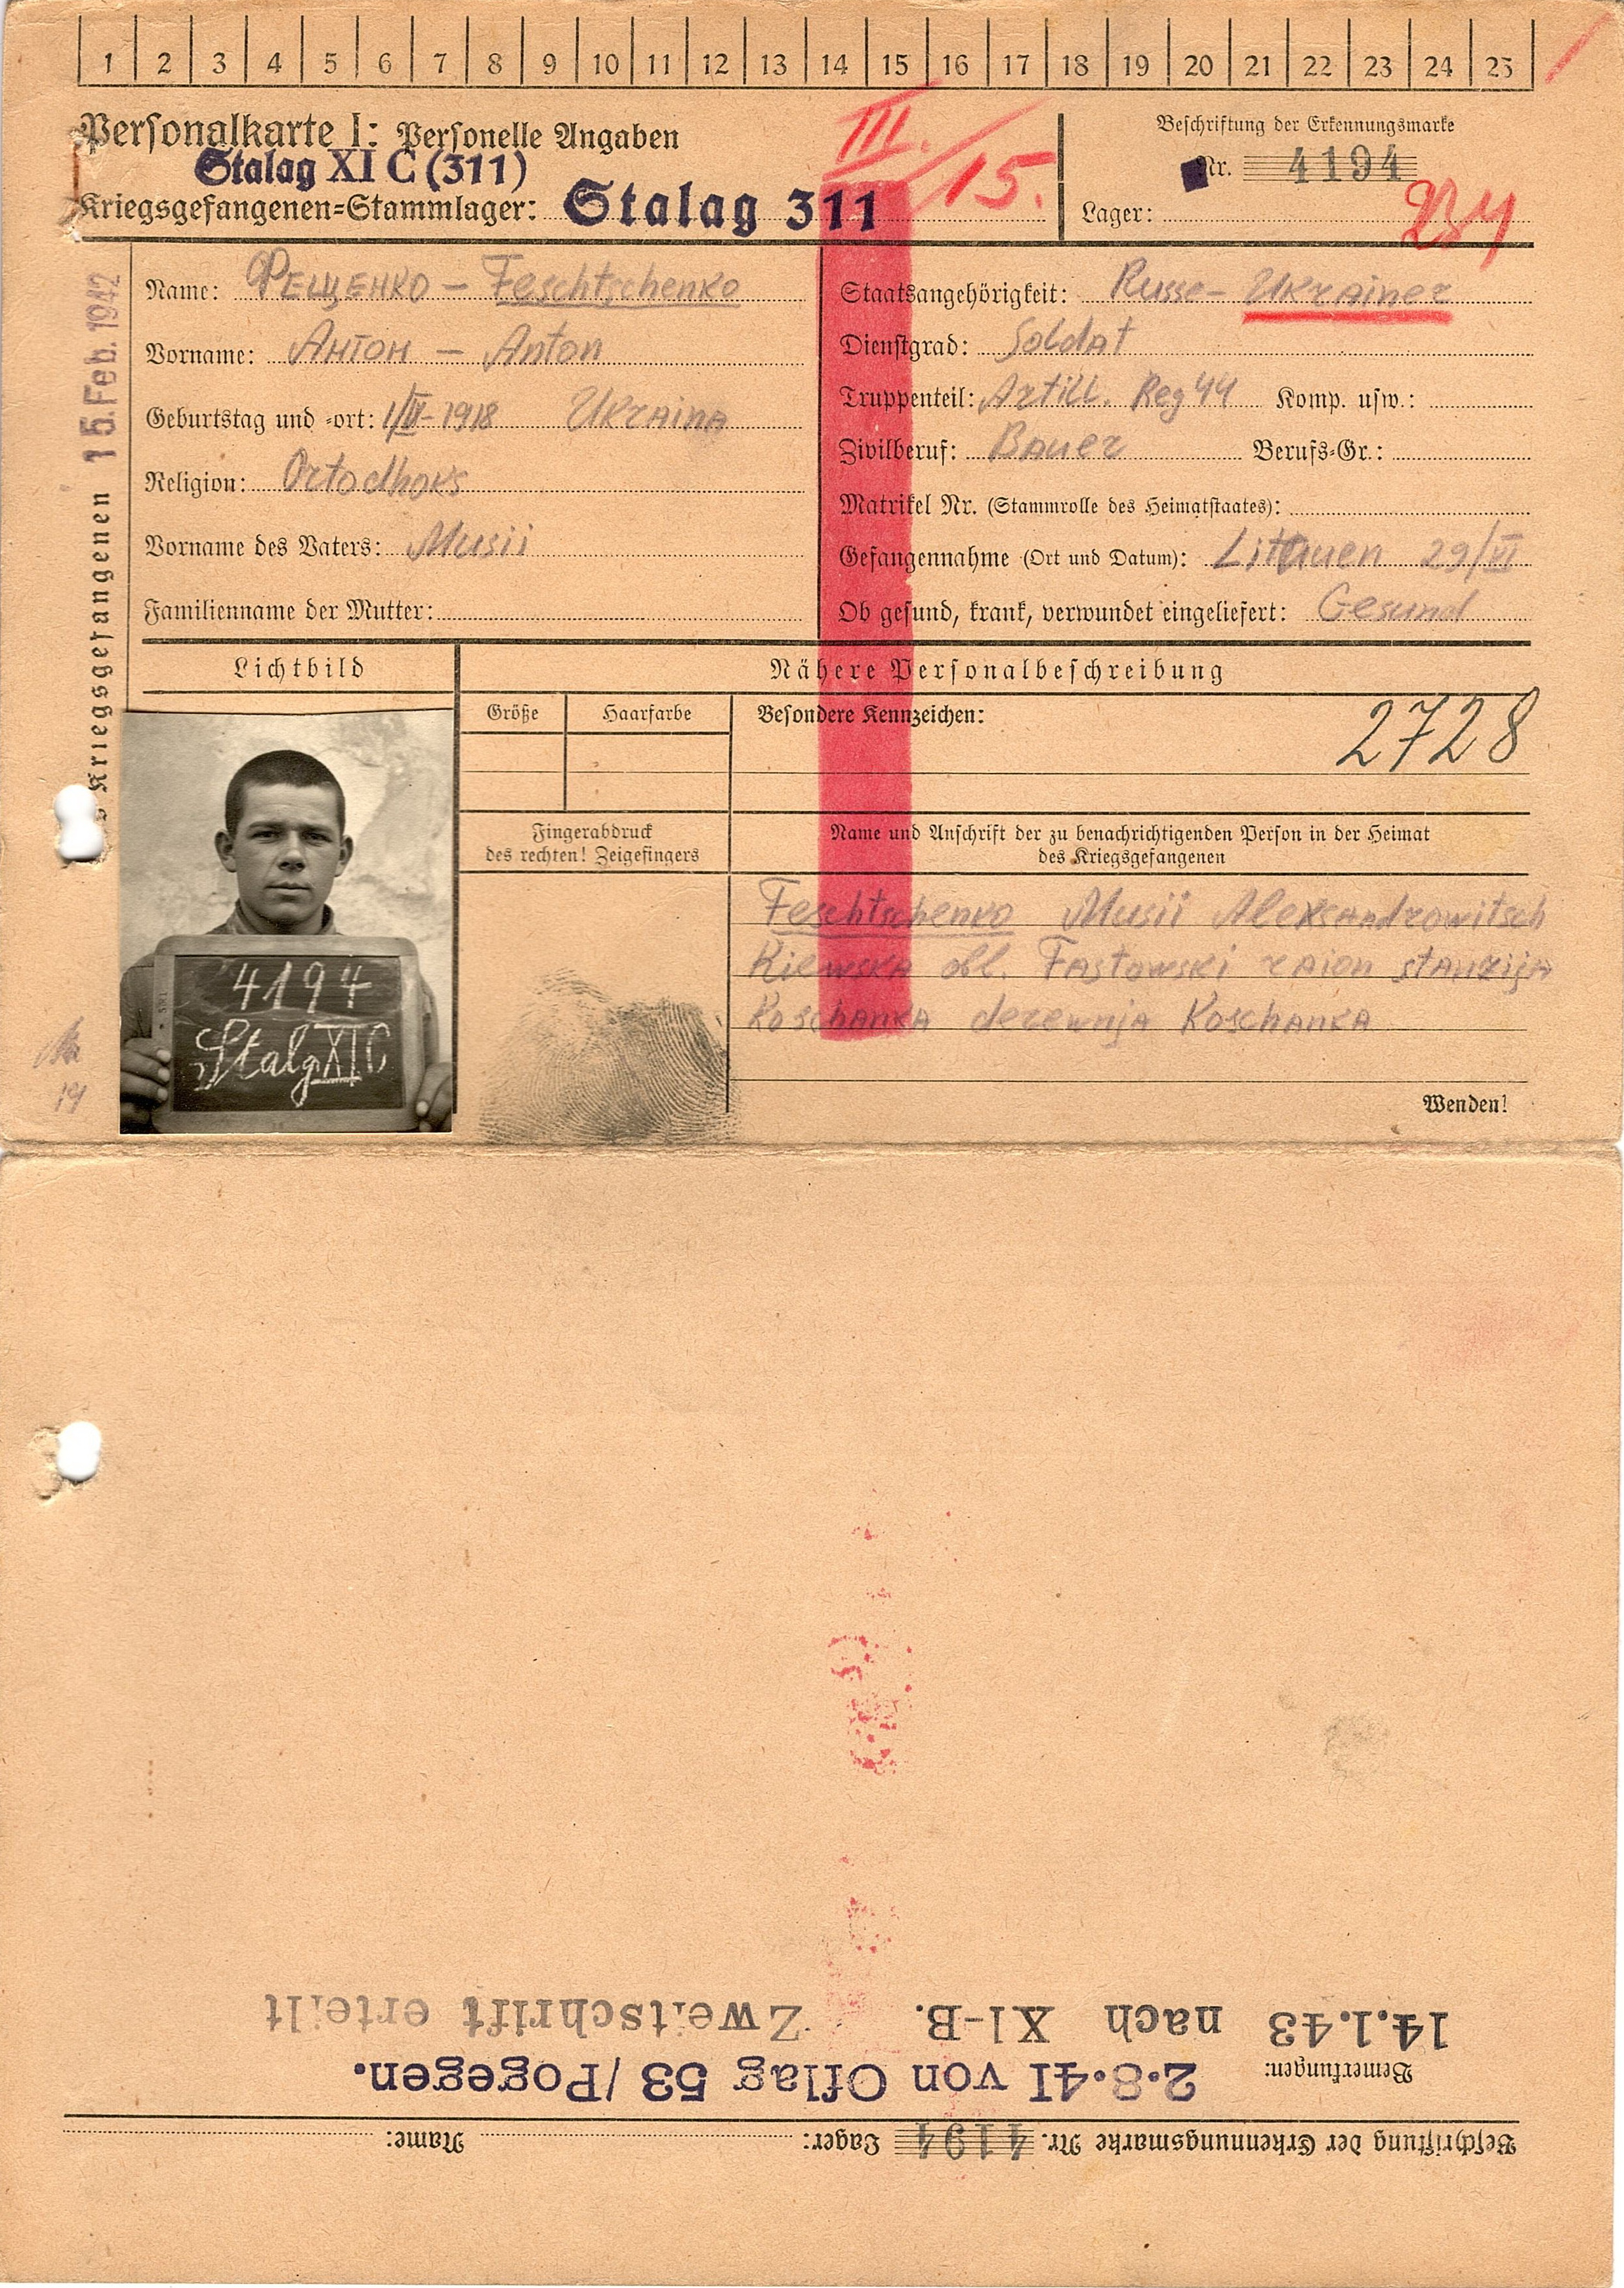 1 2 3 4 5 6 7 8 9 10 11 12 13 14 15 16 17 18 19 20 21 22 23 24 25
Personalkarte I: Personelle Angaben
Stalag XI C (311)
Kriegsgefangenen=Stammlager: Stalag 311
III. / 15.
Beschriftung der Erkennungsmarke
Nr. 4194
Lager:
15. Feb. 1942
Kriegsgefangenen
Name: Фещенко – Feschtschenko
Vorname: Антон – Anton
Geburtstag und =ort: 1/IV-1918 Ukraina
Religion: Ortodhoks
Vorname des Vaters: Musii
Familienname der Mutter:
Staatsangehörigkeit: Russe- Ukrainer
Dienstgrad: Soldat
Truppenteil: Artill. Reg 44 Komp. usw.:
Zivilberuf: Bauer Berufs=Gr.:
Matrikel Nr. (Stammrolle des Heimatstaates):
Gefangennahme (Ort und Datum): Litauen 29/VI
Ob gesund, krank, verwundet eingeliefert: Gesund
Lichtbild
Nähere Personalbeschreibung
Größe Haarfarbe Besondere Kennzeichen:
2728
Fingerabdruck
des rechten! Zeigefingers
Name und Anschrift der zu benachrichtigenden Person in der Heimat
des Kriegsgefangenen
Feschtschenko Musii Aleksandrowitsch
Kiewska obl. Fastowski raion stanzija
Koschanka derewnja Koschanka
4194
Stalg XI C
Wenden!
Beschriftung der Erkennungsmarke Nr. 4194 Lager: Name:
Bemerkungen: 2.8.41 von Oflag 53/Pogegen.
14.1.43 nach XI-B. Zweitschrift erteilt